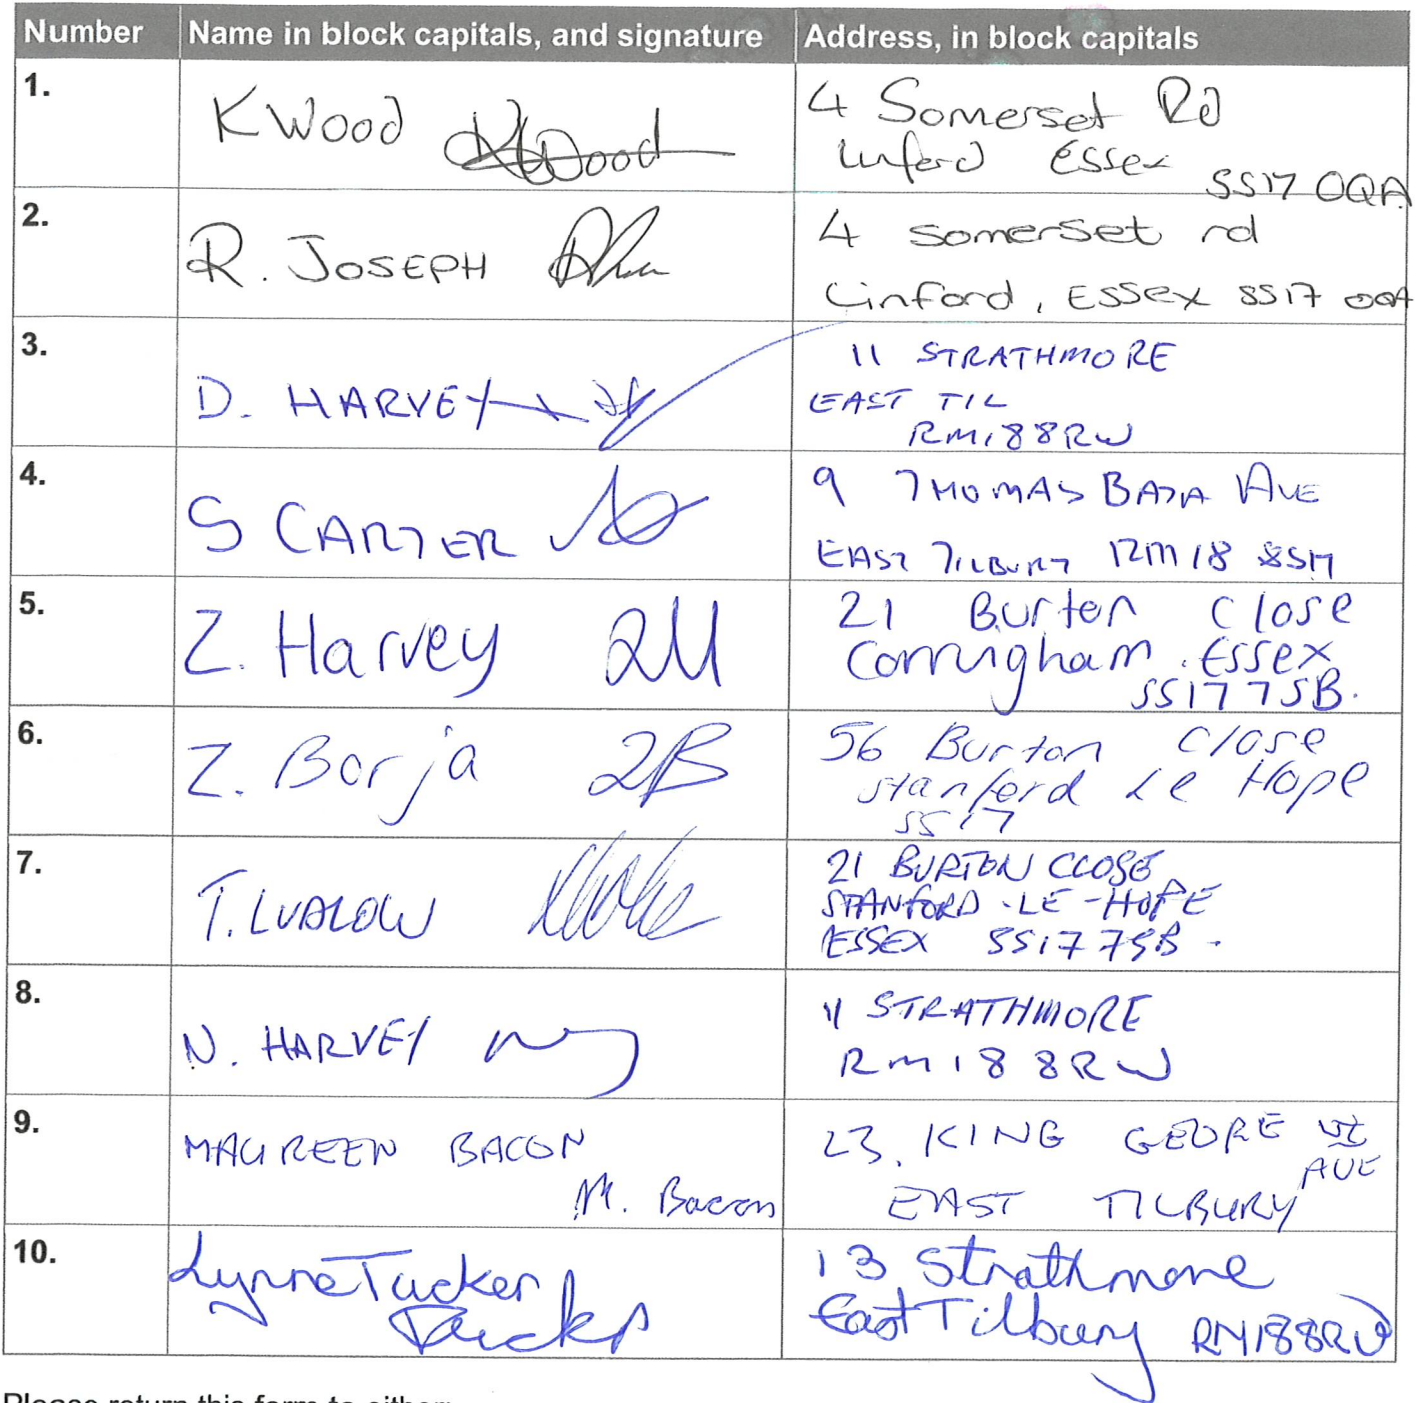 Number Name in block capitals, and signature Address, in block capitals
1.
K Wood KWood
4 Somerset Rd
Linford Essex
SS17 0QA
2.
R. JOSEPH
4 somerset rd
Linford, Essex SS17 0QA
3.
D. HARVEY
11 STRATHMORE
EAST TIL
RM188RW
4.
S CARTER
9 THOMAS BATA AVE
EAST TILBURY RM18 8SH
5.
Z. Harvey ZH
21 Burton Close
Corringham. Essex
SS17 7SB.
6.
Z. Borja ZB
56 Burton Close
Stanford Le Hope
SS17
7.
T. LUDLOW
21 BURTON CLOSE
STANFORD-LE-HOPE
ESSEX SS17 7SB.
8.
N. HARVEY
11 STRATHMORE
RM18 8RW
9.
MAUREEN BACON
M. Bacon
23. KING GEORE VI
AVE
EAST TILBURY
10.
Lynne Tucker
Tucker
13 Strathmore
East Tilbury RM188RW
Please return this form to either: